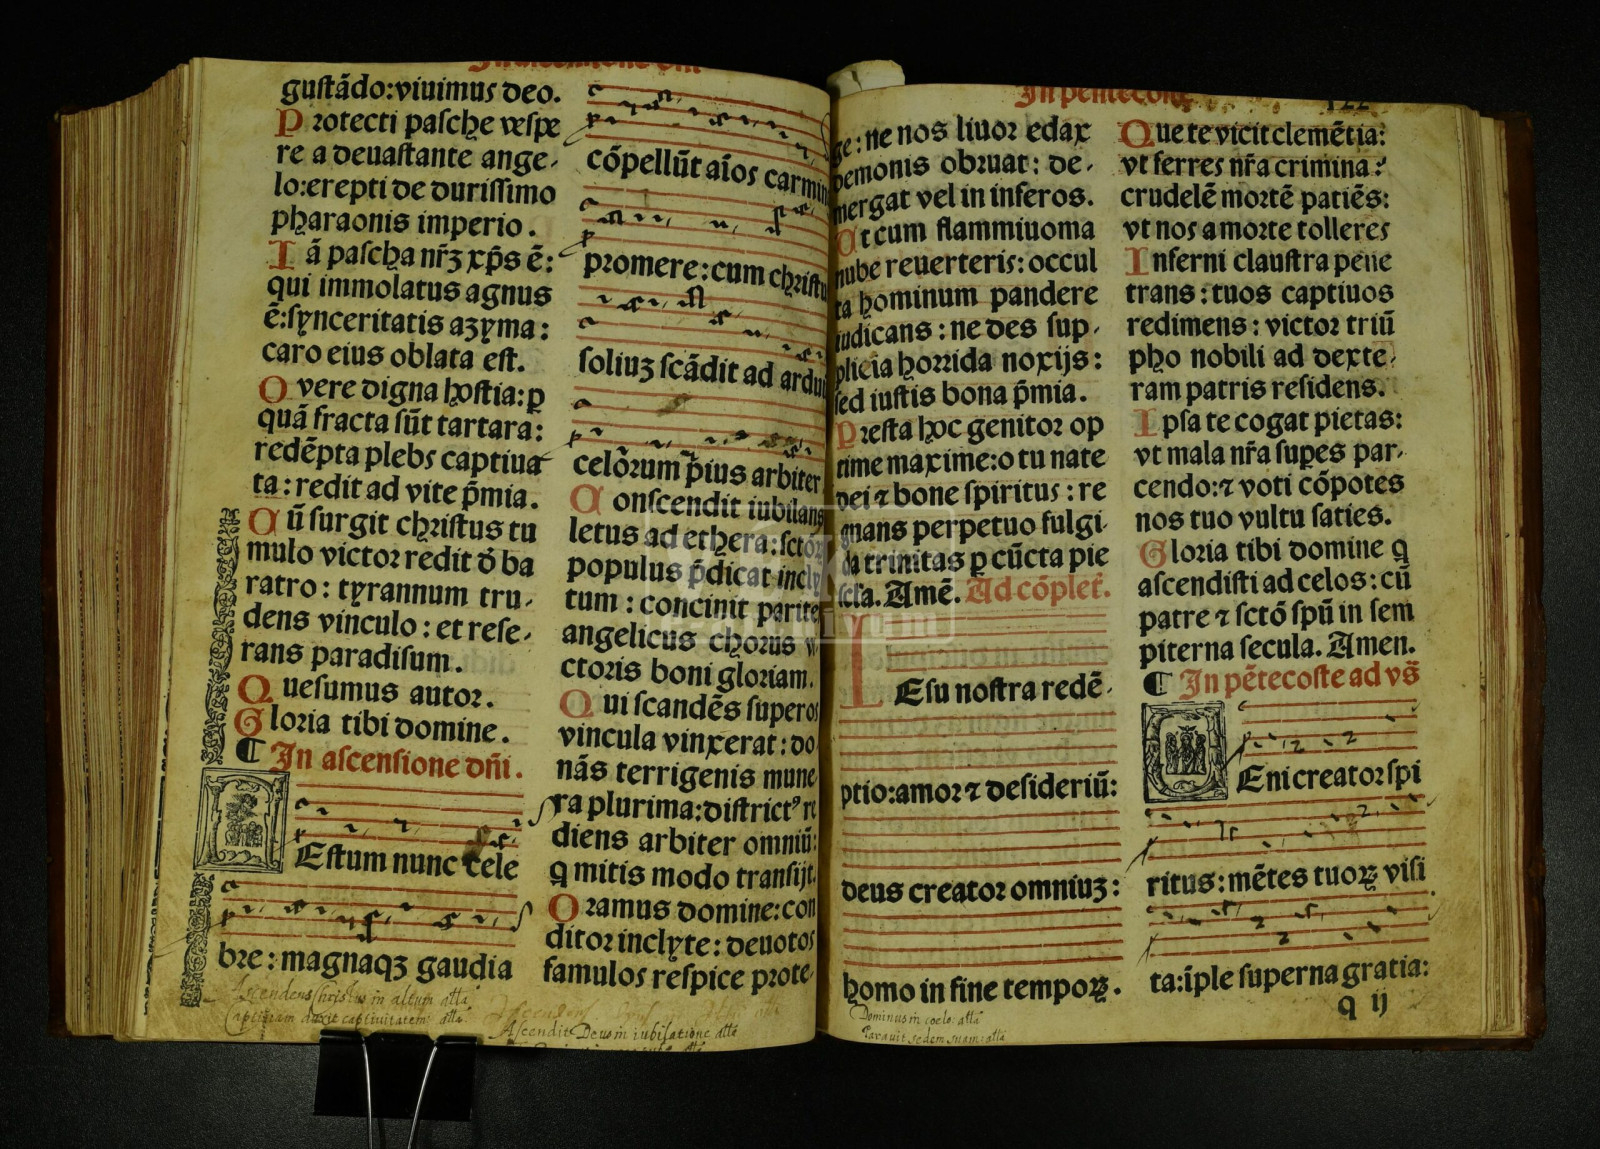 In ascensione dñi
gustãdo:viuimus deo.
Protecti pasche vespe
re a deuastante ange-
lo:erepti de durissimo
pharaonis imperio.
Iã pascha nr̃ʒ xp̃s ẽ:
qui immolatus agnus
ẽ:synceritatis azyma:
caro eius oblata est.
O vere digna hostia:ꝑ
quã fracta sũt tartara:
redẽpta plebs captiua
ta:redit ad vite p̃mia.
Cũ surgit christus tu
mulo victor redit d̃ ba
ratro: tyrannum tru-
dens vinculo: et rese-
rans paradisum.
Quesumus autor.
Gloria tibi domine.
¶ In ascensione dñi.
Estum nunc cele
bre: magnaqʒ gaudia
cõpellũt aĩos carmin
promere:cum christu
soliuʒ scãdit ad ardu
celõrum p̃ius arbiter
Conscendit iubilans
letus ad ethera:sctõr
populus p̃dicat incly
tum: concinit parite
angelicus chorus v
ctoris boni gloriam.
Qui scandẽs superos
vincula vinxerat:do
nãs terrigenis mune
ra plurima:districtꝰ re
diens arbiter omniũ:
q̃ mitis modo transijt.
Oramus domine:con
ditor inclyte: deuotos
famulos respice prote-
Ascendens Christus in altum alla
Captiuam duxit captiuitatem: alla
Ascendit Deus in iubilatione alla
In pentecoste
ge: ne nos liuor edax
demonis obruat: de-
mergat vel in inferos.
At cum flammiuoma
nube reuerteris: occul
ta hominum pandere
iudicans: ne des sup-
plicia horrida noxijs:
sed iustis bona p̃mia.
Presta hoc genitor op
time maxime:o tu nate
dei ⁊ bone spiritus: re
gnans perpetuo fulgi-
da trinitas ꝑ cũcta pie
scľa. Amẽ. Ad cõplet̃.
IEsu nostra redẽ-
ptio:amor ⁊ desideriũ:
deus creator omniuʒ:
homo in fine tempoꝝ.
Dominus in coelo: alla
Parauit sedem suam: alla
Que te vicit clemẽtia:
vt ferres nr̃a crimina:
crudelẽ mortẽ patiẽs:
vt nos a morte tolleres
Inferni claustra pene
trans: tuos captiuos
redimens: victor triũ
pho nobili ad dexte-
ram patris residens.
Ipsa te cogat pietas:
vt mala nr̃a suꝑes par-
cendo:⁊ voti cõpotes
nos tuo vultu saties.
Gloria tibi domine q̃
ascendisti ad celos: cũ
patre ⁊ sctõ sp̃u in sem
piterna secula. Amen.
¶ In pẽtecoste ad vs̃
Eni creator spi
ritus: mẽtes tuoꝝ visi
ta:ĩple superna gratia:
q ij